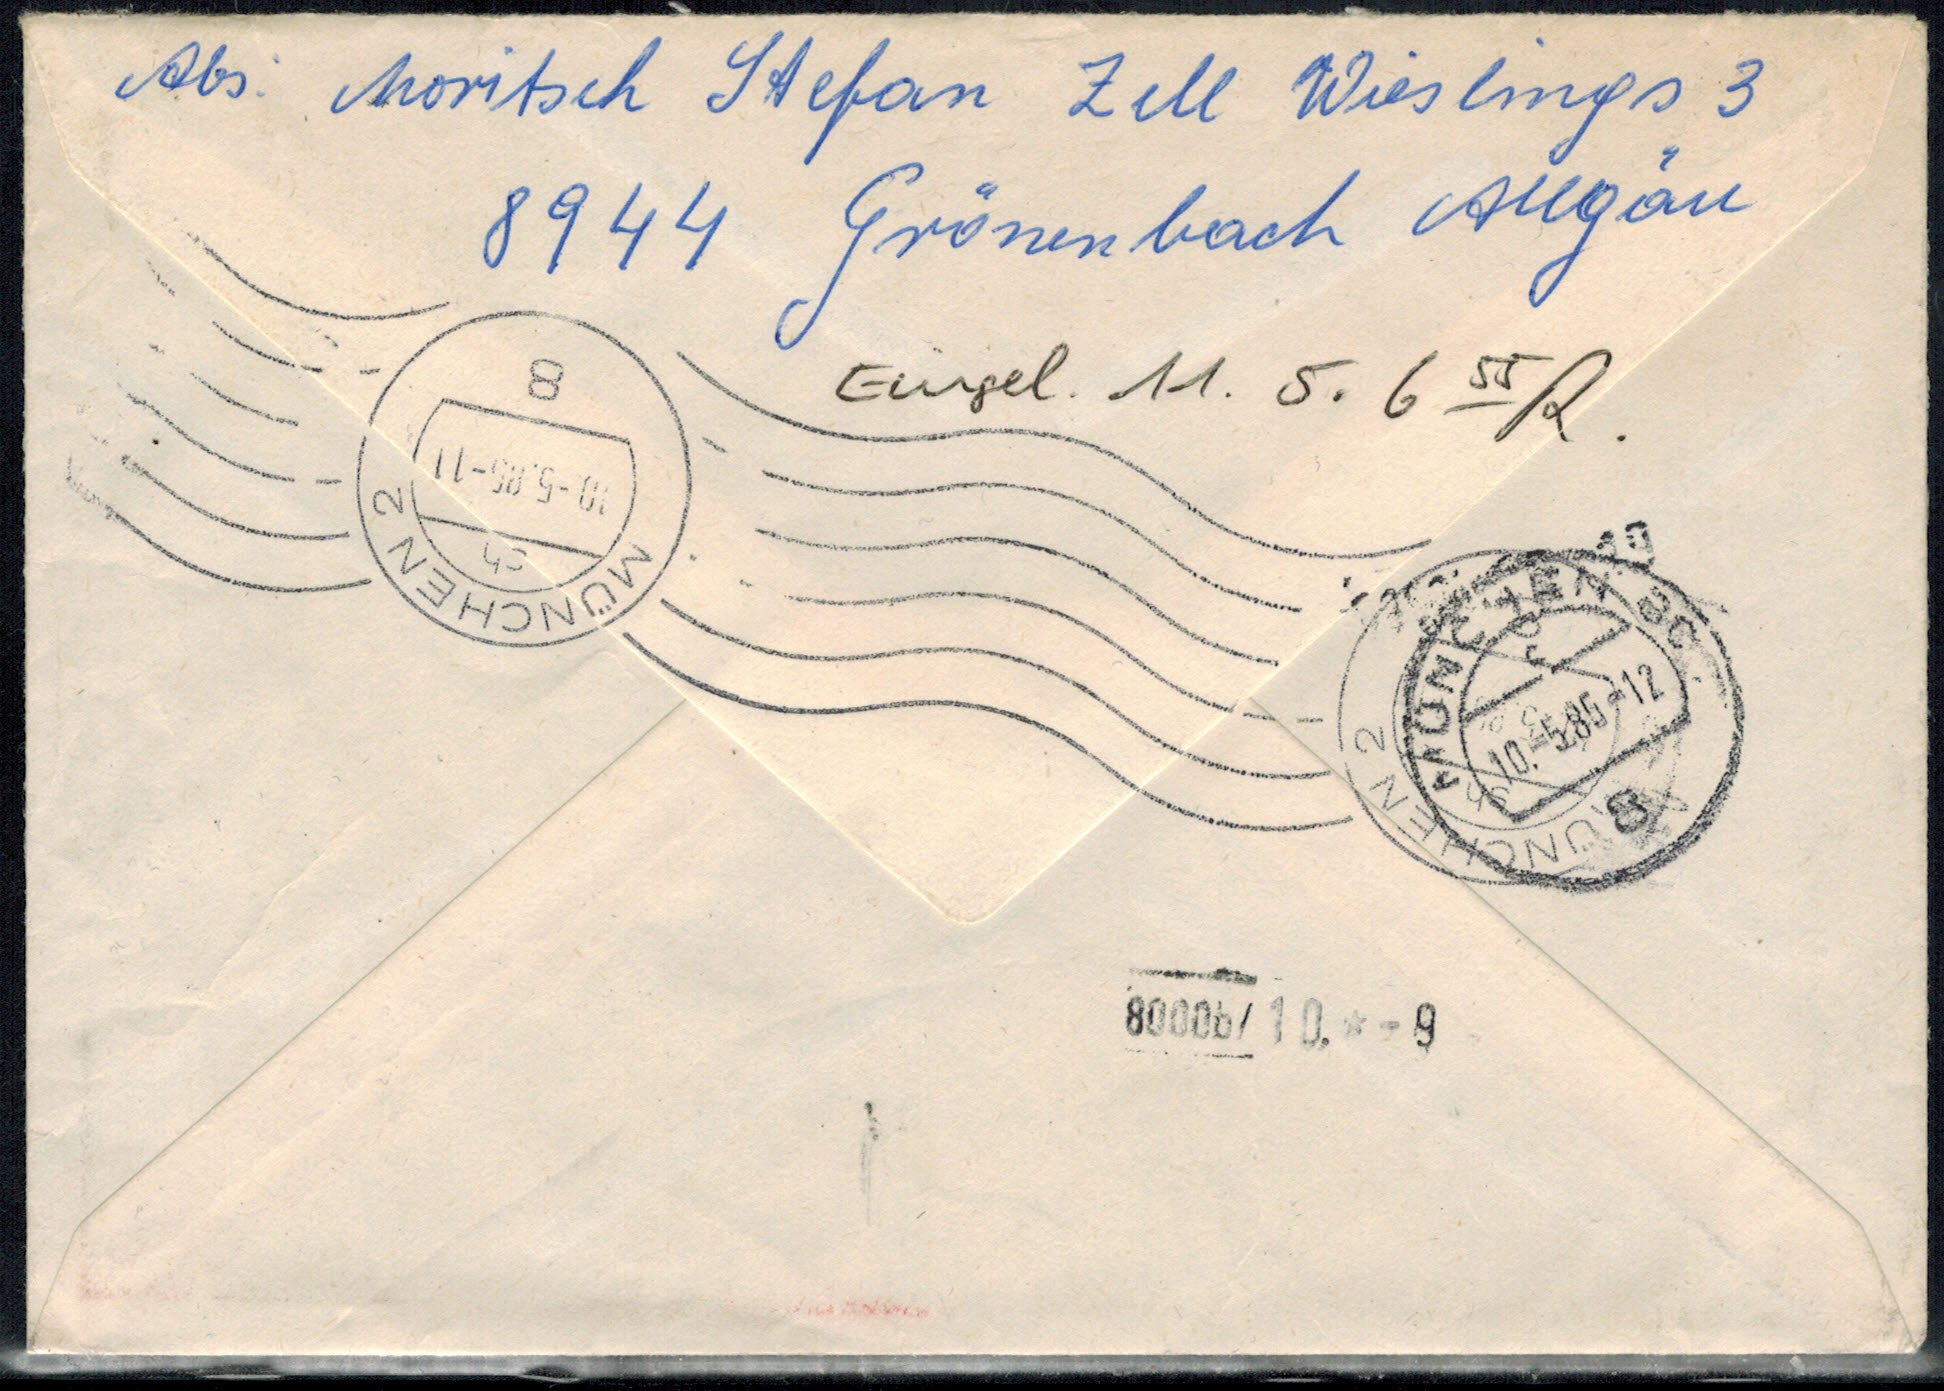 Abs: Moritsch Stefan Zell Wieslings 3
8944 Grönenbach Allgäu
Eingel. 11. 5. 6 55 R.
8
10.-5.85-11
ch
MÜNCHEN 2
MÜNCHEN 80
10.-5.85-12
8
ch
MÜNCHEN 2
8000b/ 10.*-9